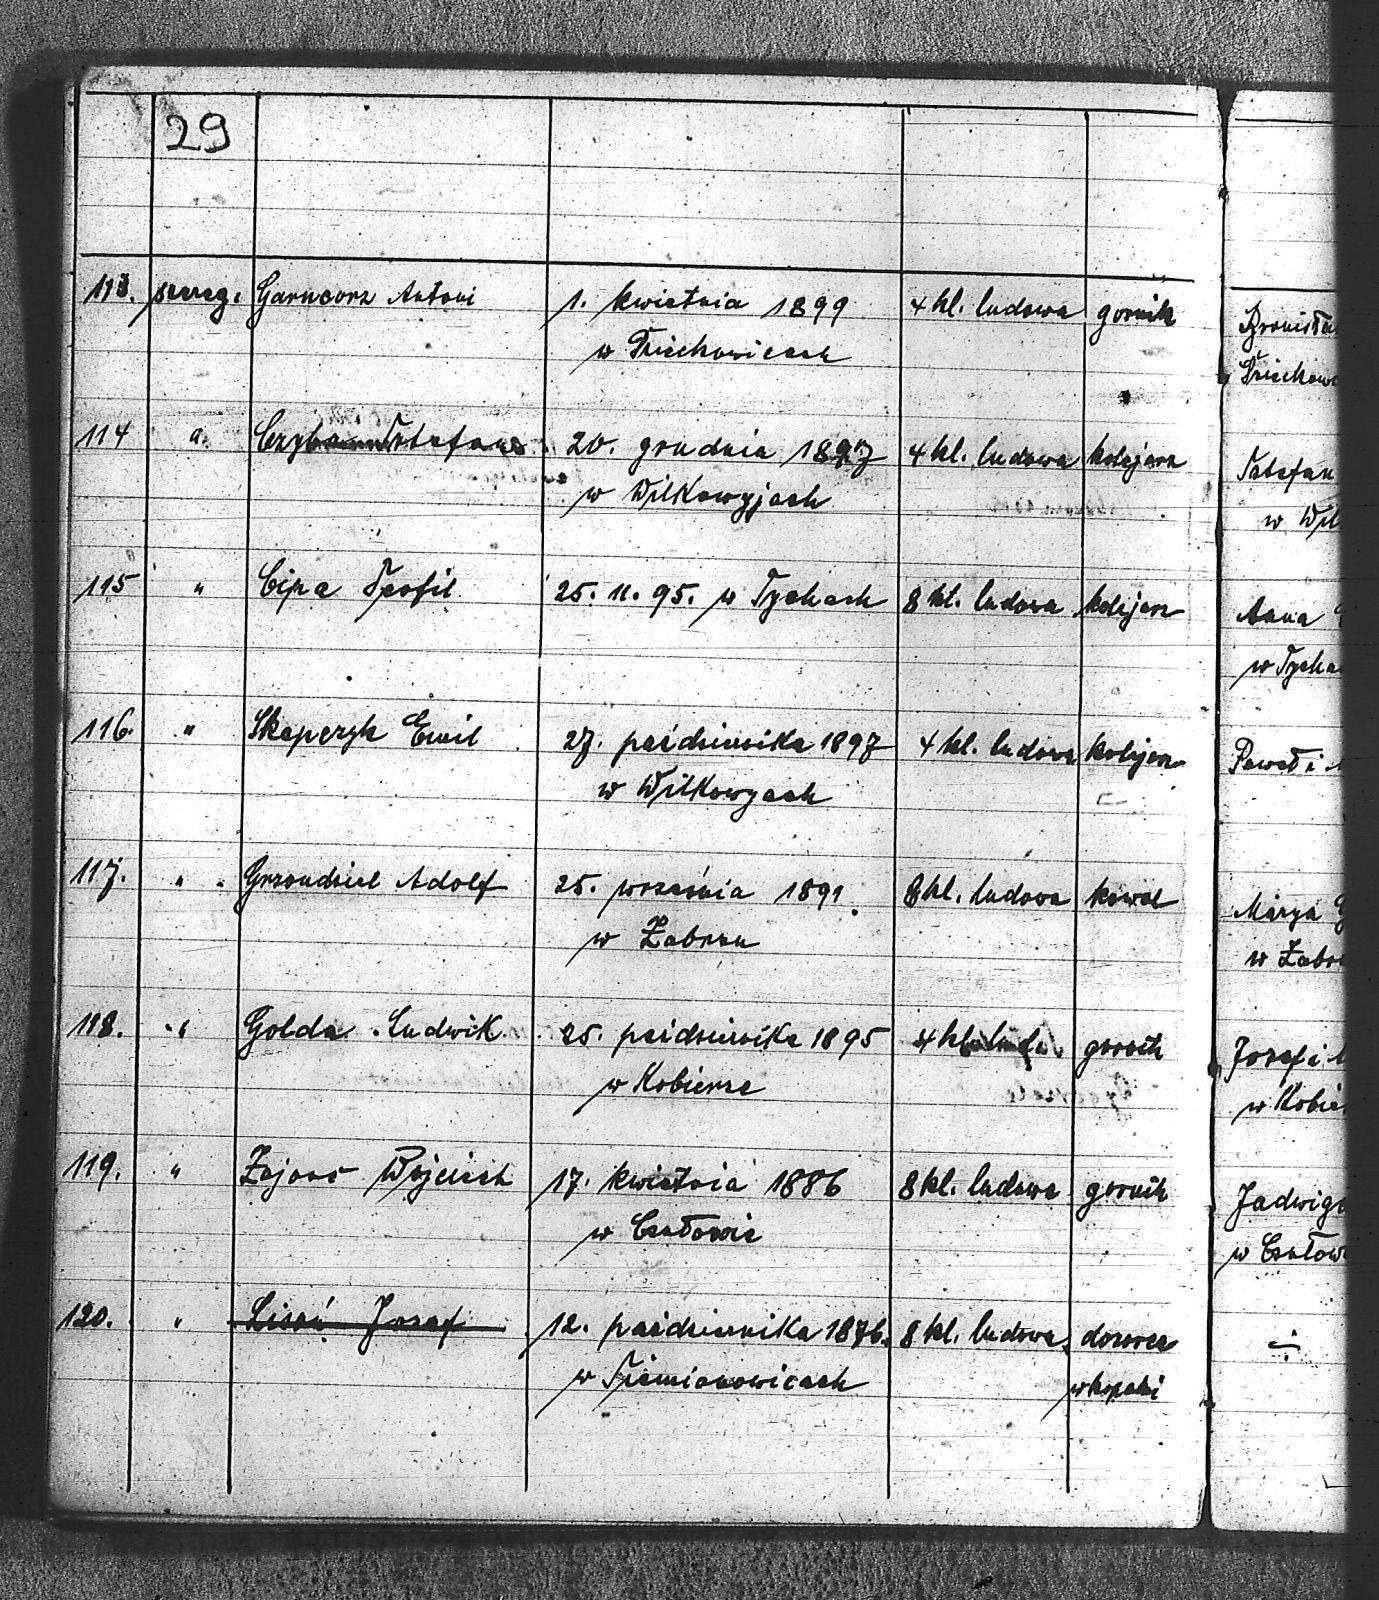 29
113. szereg. Garncorz Antoni 1. kwietnia 1899 4 kl. ludowa gornik
w
114 a. Stefan 20. grudnia 1897 4 kl. ludowa kolejarz Stefan
w Wilkowyjach w Wil
115 " Cipa Teofil 25. 11. 95. w Tychach 8 kl. ludowa kolejarz Anna
w Tycha
116. " Skapczyk Emil 27. października 1897 4 kl. ludowa kolejarz Paweł i
w Wilkowyach
117. " Grzondziel Adolf 25. września 1891. 8 kl. ludowa kowal Marya G
w Zabrzu w Zabrz
118. " Golda Ludwik 25. października 1895 4 kl. gornik Jozef i
w Kobierze w Kobie
119. " Zajonc Wojciech 17. kwietnia 1886 8 kl. ludowa gornik Jadwiga
w Czułowie w Czułow
120. " Jozef 12. października 1876. 8 kl. ludowa. dozorca ÷
w Siemianowicach w kopalni